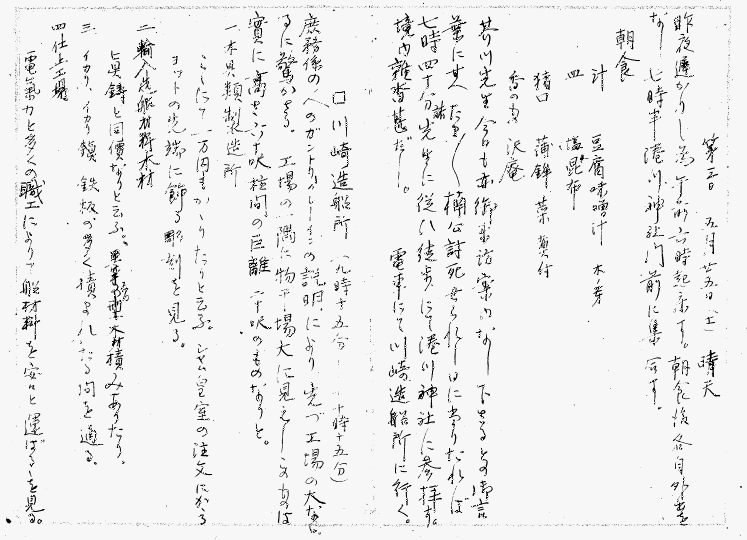 第三日 五月廿五日(土) 晴天
昨夜遅かりし為午前六時起床す。朝食後各自外出を
なし七時半湊川神社門前に集合す。
朝食
汁 豆腐味噌汁 木ノ芽
皿 塩昆布
猪口 蒲鉾 菜
香の物 沢庵
先生今日も亦御来訪案内なし下さるとの御言
葉に甘へ 楠公討死せられし日に当りたれば
七時四十分諸先生に従ひ徒歩にて湊川神社に参拝す。
境内雑沓甚だし。 電車にて川崎造船所に行く。
□川崎造船所 (九時十五分 十時十五分)
庶務係の人のガントリークレーンの説明により先づ工場の大なる
るに驚かさる。工場の一隅に物干場大に見えしこのものは
実に高さ 十呎柱間の巨離 十呎のものなりと。
一 木具類製造所
ここにて一万円もかかりたりと云ふ、シャム皇室の注文になる
ヨットの先端に飾る彫刻を見る。
二 輸入造船材料木材
真鍮と同価なりと云ふ、 木材積みありたり。
三 イカリ、イカリ鎖、鉄板の多く積まれたる間を通る。
四 仕上工場
電気力と多くの職工によりて船材料を安々と運ばるるを見る。